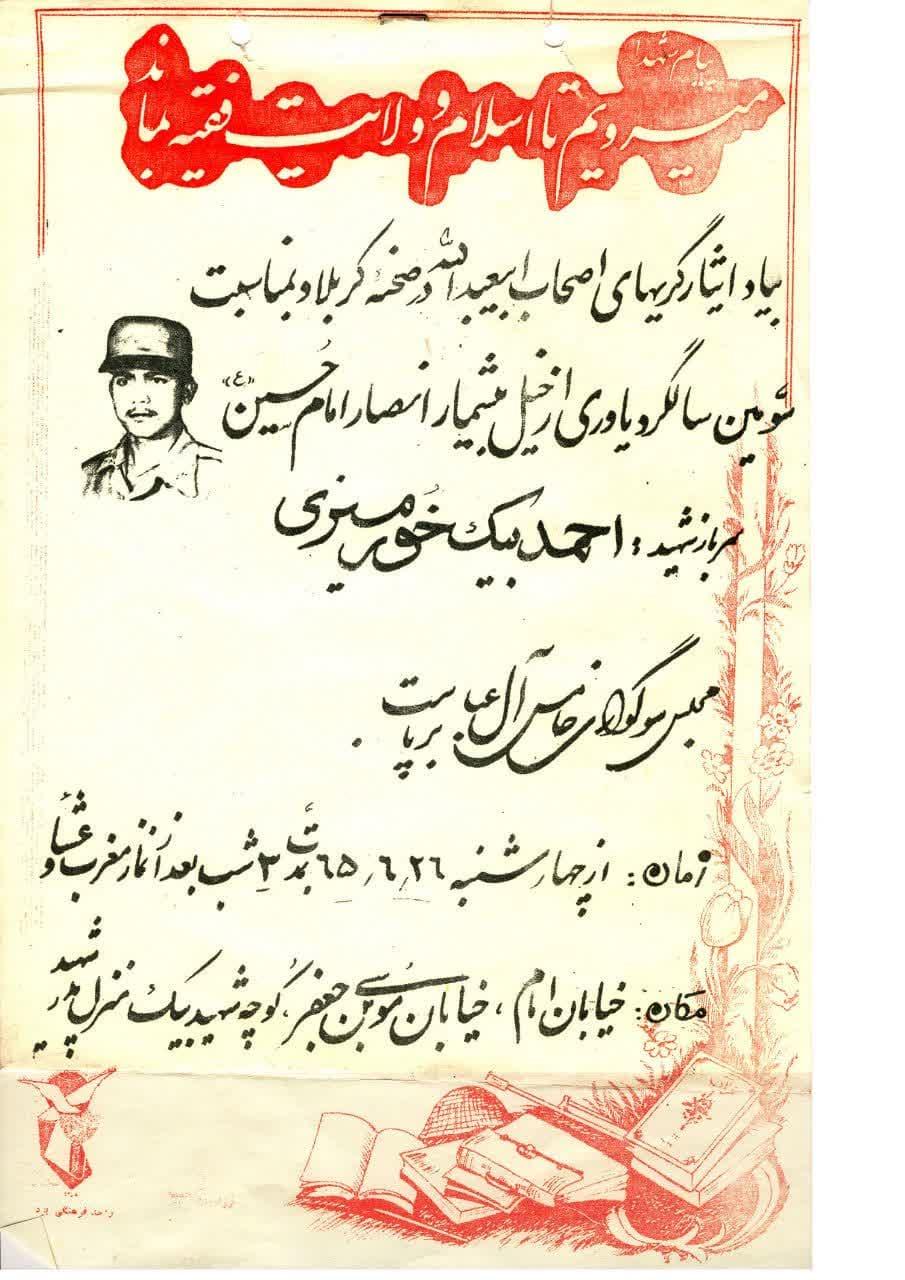 پیام شهدا
میرویم تا اسلام و ولایت فقیه بماند
بیاد ایثارگریهای اصحاب ابیعبدالله در صحنهٔ کربلا و بمناسبت
سومین سالگرد یاوری از خیل بیشمار انصار امام حسین «ع»
سرباز شهید : احمد بیک خورمیزی
مجلس سوگواری خامس آل عبا برپاست .
زمان : از چهارشنبه ۲۶/۶/۶۵ بمدت ۳ شب بعد از نماز مغرب و عشاء
مکان : خیابان امام ، خیابان موسی بن جعفر، کوچه شهید بیک منزل پدر شهید
واحد فرهنگی یزد